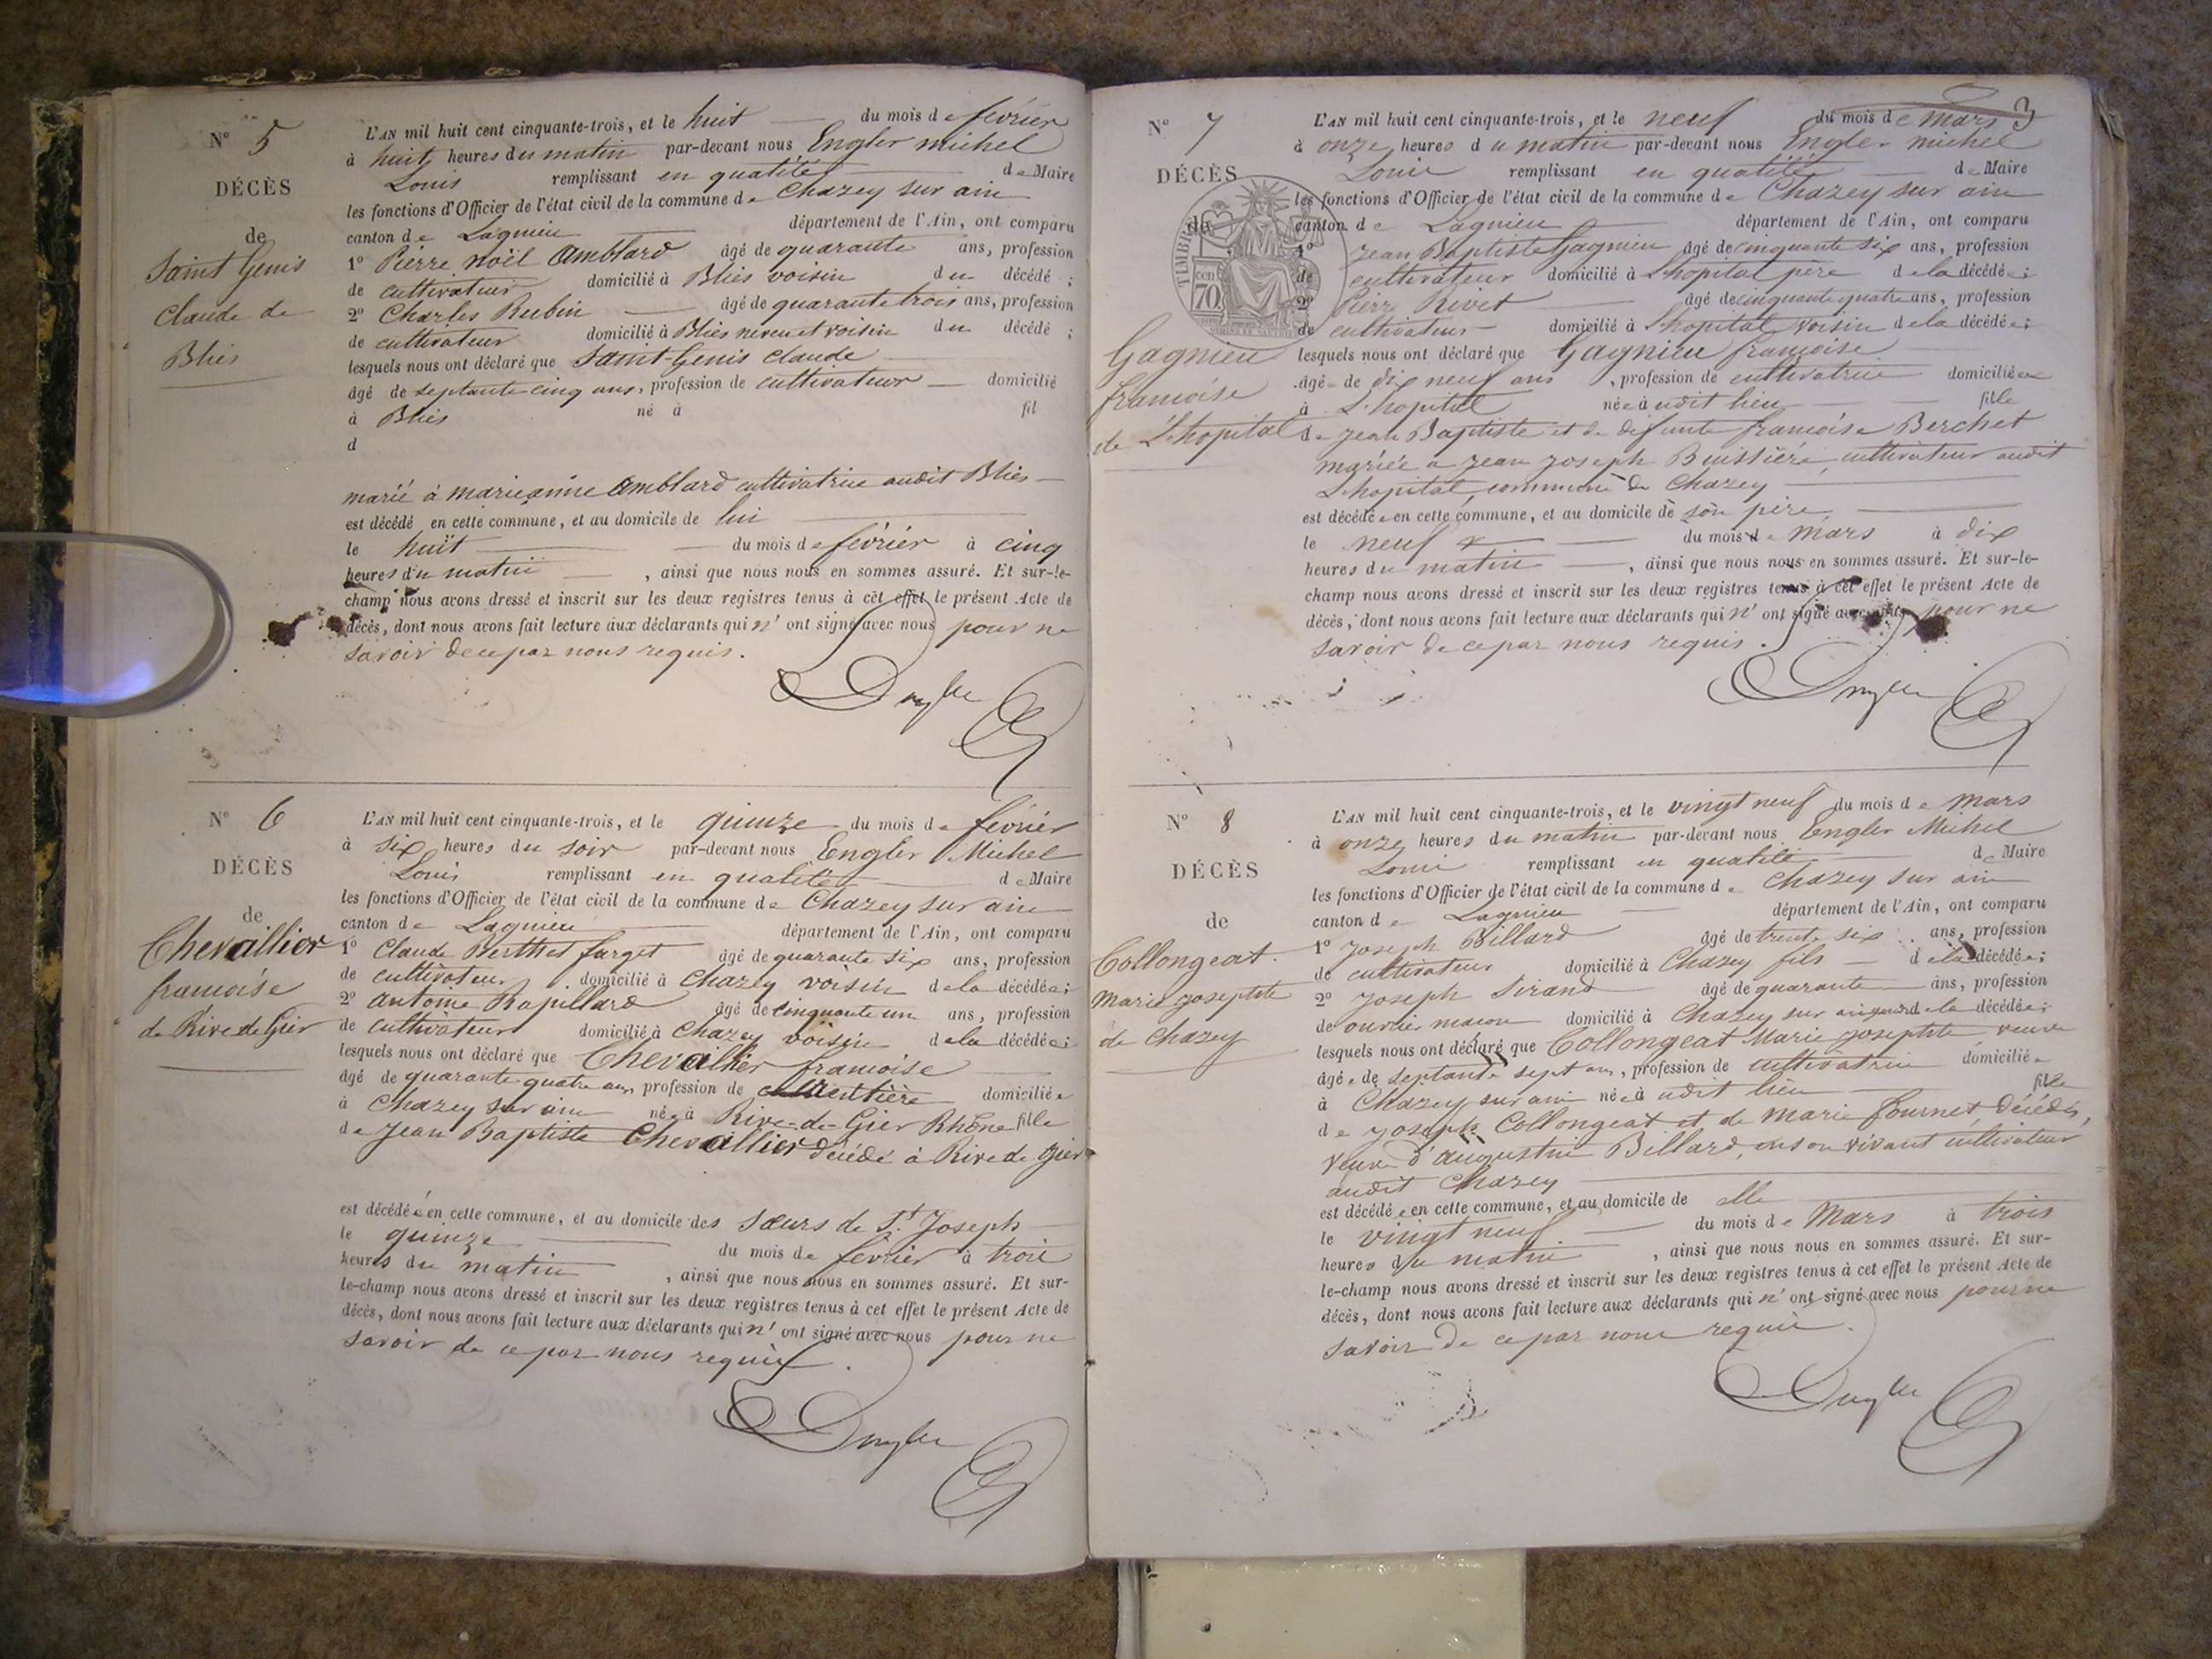 N° 5
DÉCÈS
de
Saint Genis
Claude de
Blies
L'AN mil huit cent cinquante-trois, et le huit du mois de février
à huit heures du matin par-devant nous Engler michel
Louis remplissant en qualité de Maire
les fonctions d'Officier de l'état civil de la commune de Chazey sur ain
canton de Lagnieu département de l'Ain, ont comparu
1° Pierre noël Amblard âgé de quarante ans, profession
de cultivateur domicilié à Blies voisin du décédé ;
2° Charles Rubin âgé de quarante trois ans, profession
de cultivateur domicilié à Blies neveu et voisin du décédé ;
lesquels nous ont déclaré que Saint Genis Claude
âgé de septante cinq ans, profession de cultivateur domicilié
à Blies né à fil
d
marié à marieanne Amblard cultivatrice audit Blies
est décédé en cette commune, et au domicile de lui
le huit du mois de février à cinq
heures du matin , ainsi que nous nous en sommes assuré. Et sur-le-
champ nous avons dressé et inscrit sur les deux registres tenus à cet effet le présent Acte de
décès, dont nous avons fait lecture aux déclarants qui n' ont signé avec nous pour ne
savoir de ce par nous requis.
Engler
N° 6
DÉCÈS
de
Chevallier
francoise
de Rive de Gier
L'AN mil huit cent cinquante-trois, et le quinze du mois de février
à six heures du soir par-devant nous Engler Michel
Louis remplissant en qualité de Maire
les fonctions d'Officier de l'état civil de la commune de Chazey sur ain
canton de Lagnieu département de l'Ain, ont comparu
1° Claude Berthet farget âgé de quarante six ans, profession
de cultivateur domicilié à Chazey voisin de la décédée ;
2° antoine Rapillard âgé de cinquante un ans, profession
de cultivateur domicilié à Chazey voisin de la décédée ;
lesquels nous ont déclaré que Chevallier francoise
âgé de quarante quatre ans, profession de domiciliée
à Chazey sur ain née à Rive-de-Gier Rhône fille
de Jean Baptiste Chevallier décédé à Rive de Gier
est décédée en cette commune, et au domicile des Sœurs de St. Joseph
le quinze du mois de février à trois
heures du matin , ainsi que nous nous en sommes assuré. Et sur-
le-champ nous avons dressé et inscrit sur les deux registres tenus à cet effet le présent Acte de
décès, dont nous avons fait lecture aux déclarants qui n' ont signé avec nous pour ne
savoir de ce par nous requis.
Engler
3
N° 7
DÉCÈS
de
TIMBRE
70
Gagnieu
francoise
de L'hopital
L'AN mil huit cent cinquante-trois, et le neuf du mois de mars
à onze heures du matin par-devant nous Engler michel
Louis remplissant en qualité de Maire
les fonctions d'Officier de l'état civil de la commune de Chazey sur ain
canton de Lagnieu département de l'Ain, ont comparu
1° Jean Baptiste Gagnieu âgé de cinquante six ans, profession
de cultivateur domicilié à L'hopital père de la décédée ;
2° Pierre Rivet âgé de cinquante quatre ans, profession
de cultivateur domicilié à L'hopital voisin de la décédée ;
lesquels nous ont déclaré que Gagnieu francoise
âgé de dix neuf ans , profession de cultivatrice domiciliée
à L'hopital née à udit lieu fille
de Jean Baptiste et de defunte francoise Berchet
mariée a Jean Joseph Buissiére, cultivateur audit
L'hopital, commune de Chazey
est décédée en cette commune, et au domicile de son père
le neuf du mois de mars à dix
heures du matin , ainsi que nous nous en sommes assuré. Et sur-le-
champ nous avons dressé et inscrit sur les deux registres tenus à cet effet le présent Acte de
décès, dont nous avons fait lecture aux déclarants qui n' ont signé avec nous pour ne
savoir de ce par nous requis.
Engler
N° 8
DÉCÈS
de
Collongeat
Marie Josephte
de Chazey
L'AN mil huit cent cinquante-trois, et le vingt neuf du mois de mars
à onze heures du matin par-devant nous Engler Michel
Louis remplissant en qualité de Maire
les fonctions d'Officier de l'état civil de la commune de Chazey sur ain
canton de Lagnieu département de l'Ain, ont comparu
1° Joseph Billard âgé de trente six ans, profession
de cultivateur domicilié à Chazey fils de la décédée ;
2° Joseph Sirand âgé de quarante ans, profession
de ouvrier macon domicilié à Chazey sur ain de la décédée ;
lesquels nous ont déclaré que Collongeat Marie Josephte veuve
âgée de septante sept ans, profession de cultivatrice domiciliée
à Chazey sur ain née à udit lieu fille
de Joseph Collongeat et de Marie fournet, décédés,
veuve d'augustin Billard, en son vivant cultivateur
audit Chazey
est décédée en cette commune, et au domicile de elle
le vingt neuf du mois de Mars à trois
heures du matin , ainsi que nous nous en sommes assuré. Et sur-
le-champ nous avons dressé et inscrit sur les deux registres tenus à cet effet le présent Acte de
décès, dont nous avons fait lecture aux déclarants qui n' ont signé avec nous pour ne
savoir de ce par nous requis.
Engler